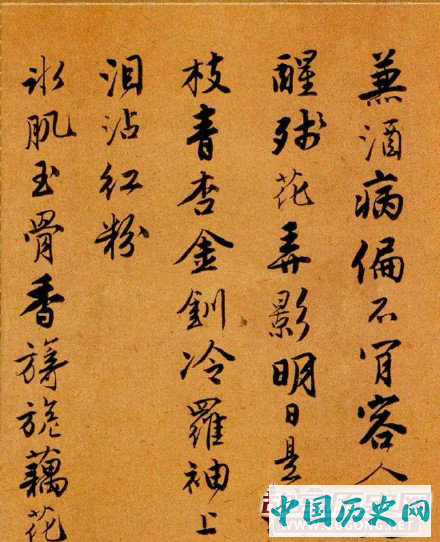 兼酒病偏不肎容人
醒殘花弄影明日是
枝青杏金釧冷羅袖上
泪沾紅粉
冰肌玉骨香旖旎藕花
中国历史网